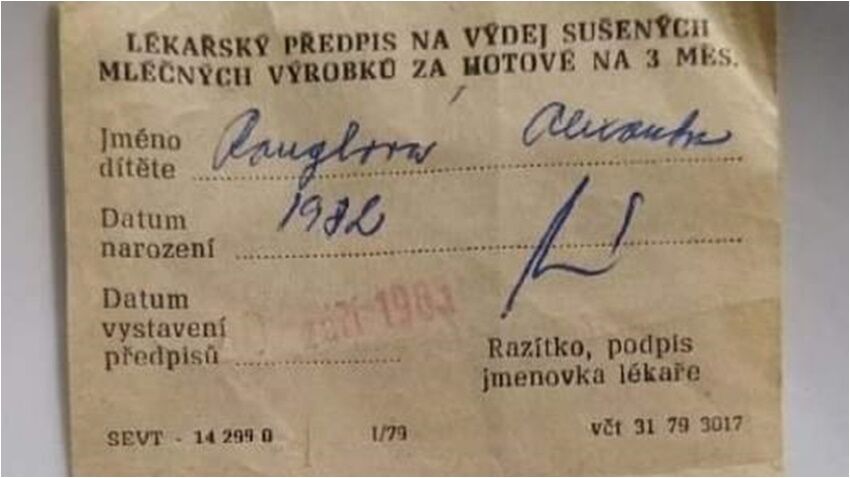 LÉKAŘSKÝ PŘEDPIS NA VÝDEJ SUŠENÝCH
MLÉČNÝCH VÝROBKŮ ZA HOTOVÉ NA 3 MĚS.
Jméno
dítěte
Datum
narození
1982
Datum
vystavení
předpisů
září 1983
Razítko, podpis
jmenovka lékaře
SEVT - 14 299 0 1/79 včt 31 79 3017